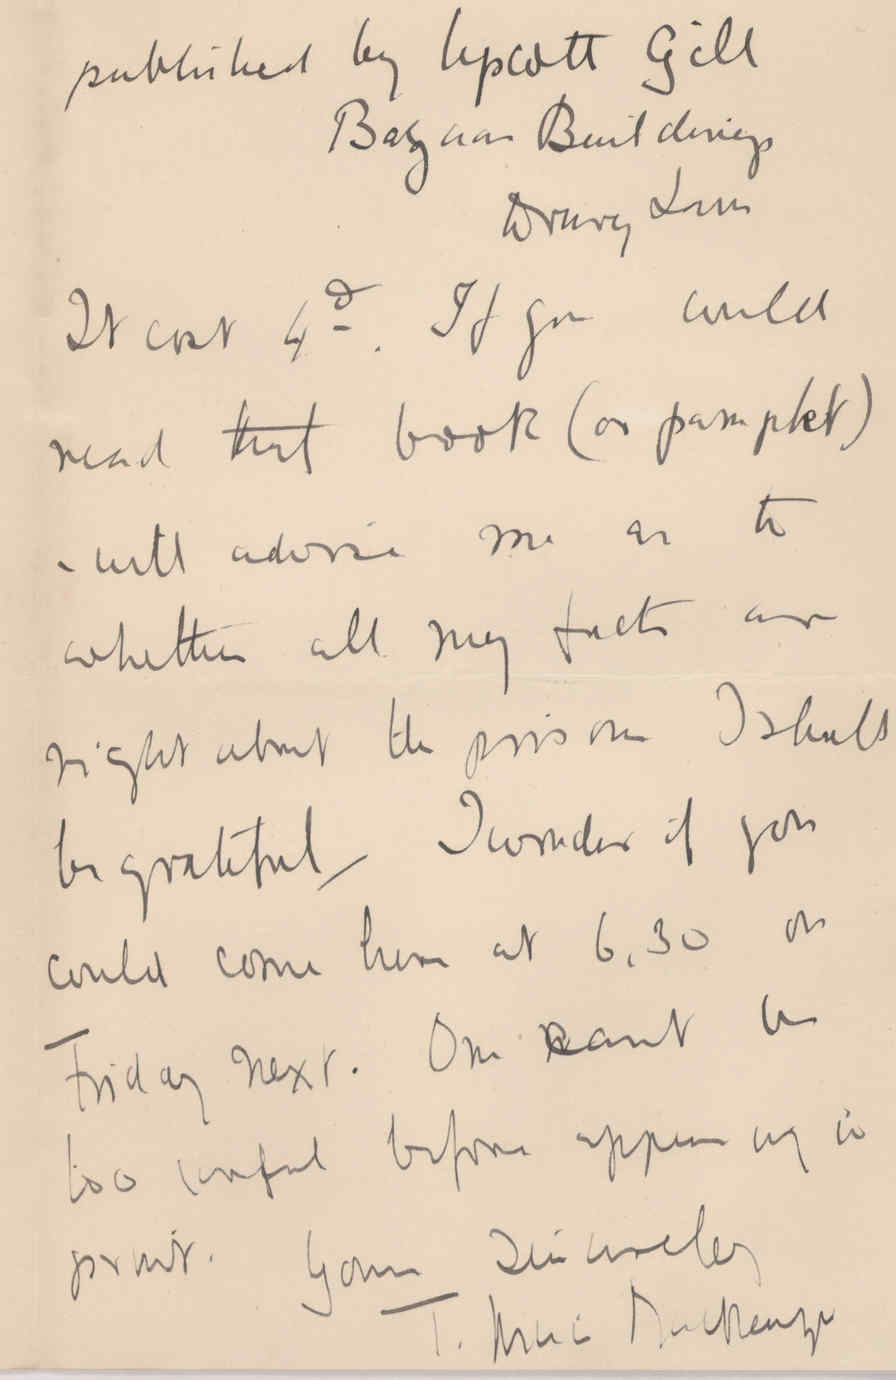 published by Upcott Gill
Bazaar Buildings
Drury Lane
It cost 4d. If you could
read that book (or pamplet)
& will advise me as to
whether all my facts are
right about the prison I shall
be grateful. I wonder if you
could come here at 6.30 on
Friday next. One cant be
too careful before appearing in
print. Yours Sincerely
T. Mackenzie